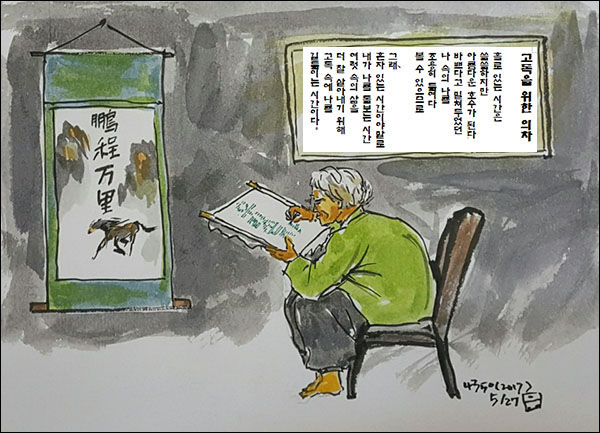 鵬程万里
고독을 위한 의자
홀로 있는 시간은
쓸쓸하지만
아름다운 호수가 된다
바쁘다고 밀쳐두었던
나 속의 나를
조용히 들여다
볼 수 있으므로
그래,
혼자 있는 시간이야말로
내가 나를 돌보는 시간
여럿 속의 삶을
더 잘 살아내기 위해
고독 속에 나를
길들이는 시간이다.
(2017)
5/27